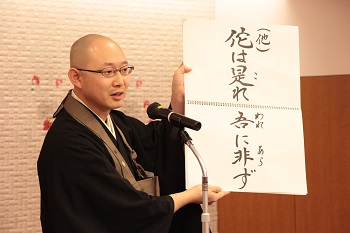 (他)
佗は是れ
こ
吾に非ず
われ あら